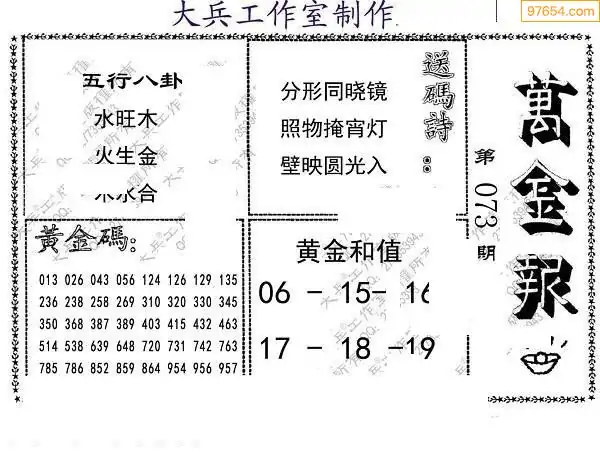 大兵工作室制作
97654.com
五行八卦
水旺木
火生金
木水合
分形同晓镜
照物掩宵灯
壁映圆光入
送碼詩：
萬金報
第073期
黃金碼：
013 026 043 056 124 126 129 135
236 238 258 269 310 320 330 345
350 368 387 389 403 415 432 463
514 538 639 648 720 731 742 763
785 786 852 859 864 954 956 957
黄金和值
06 - 15- 16
17 - 18 -19